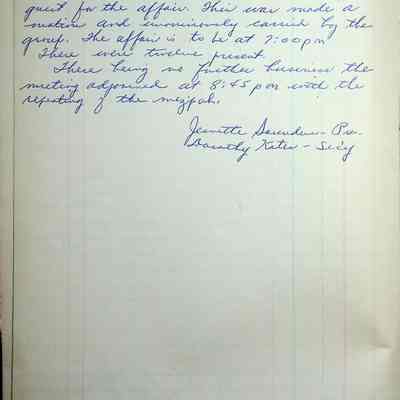 guest for the affair. This was made a
motion and unanimously carried by the
group. The affair is to be at 7:00 pm
There were twelve present.
There being no further business the
meeting adjourned at 8:45 pm with the
repeating of the mizpah.
Jeanette Pre.
Dorothy - Sec'y